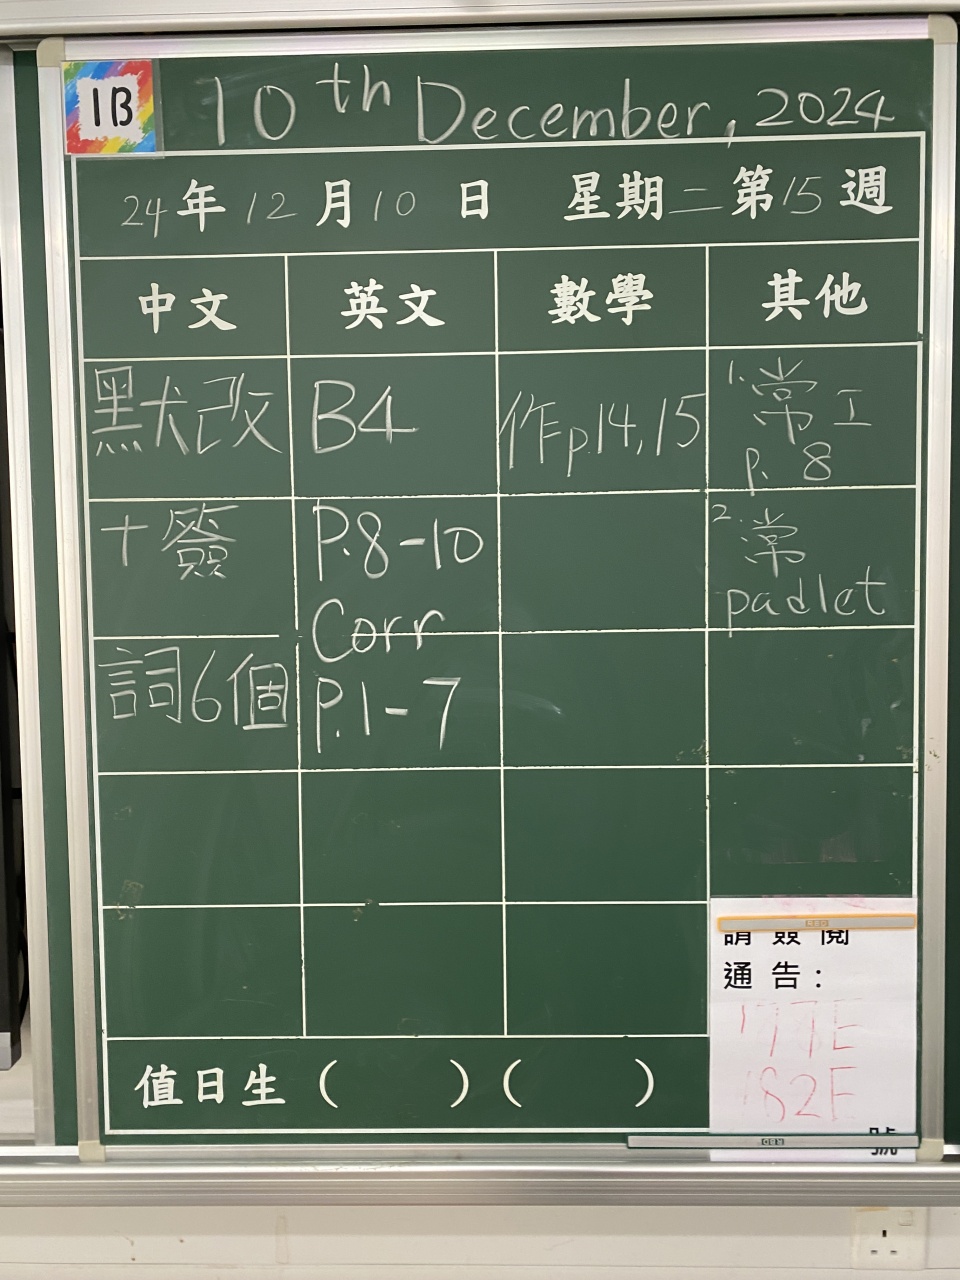 1B
10th December, 2024
24年12月10日 星期二第15週
中文 英文 數學 其他
默改
十簽
詞6個
B4
P.8-10
Corr
P.1-7
作p.14,15
1. 常工
p. 8
2. 常
padlet
請簽閱
通告:
177E
182E
號
值日生( )( )